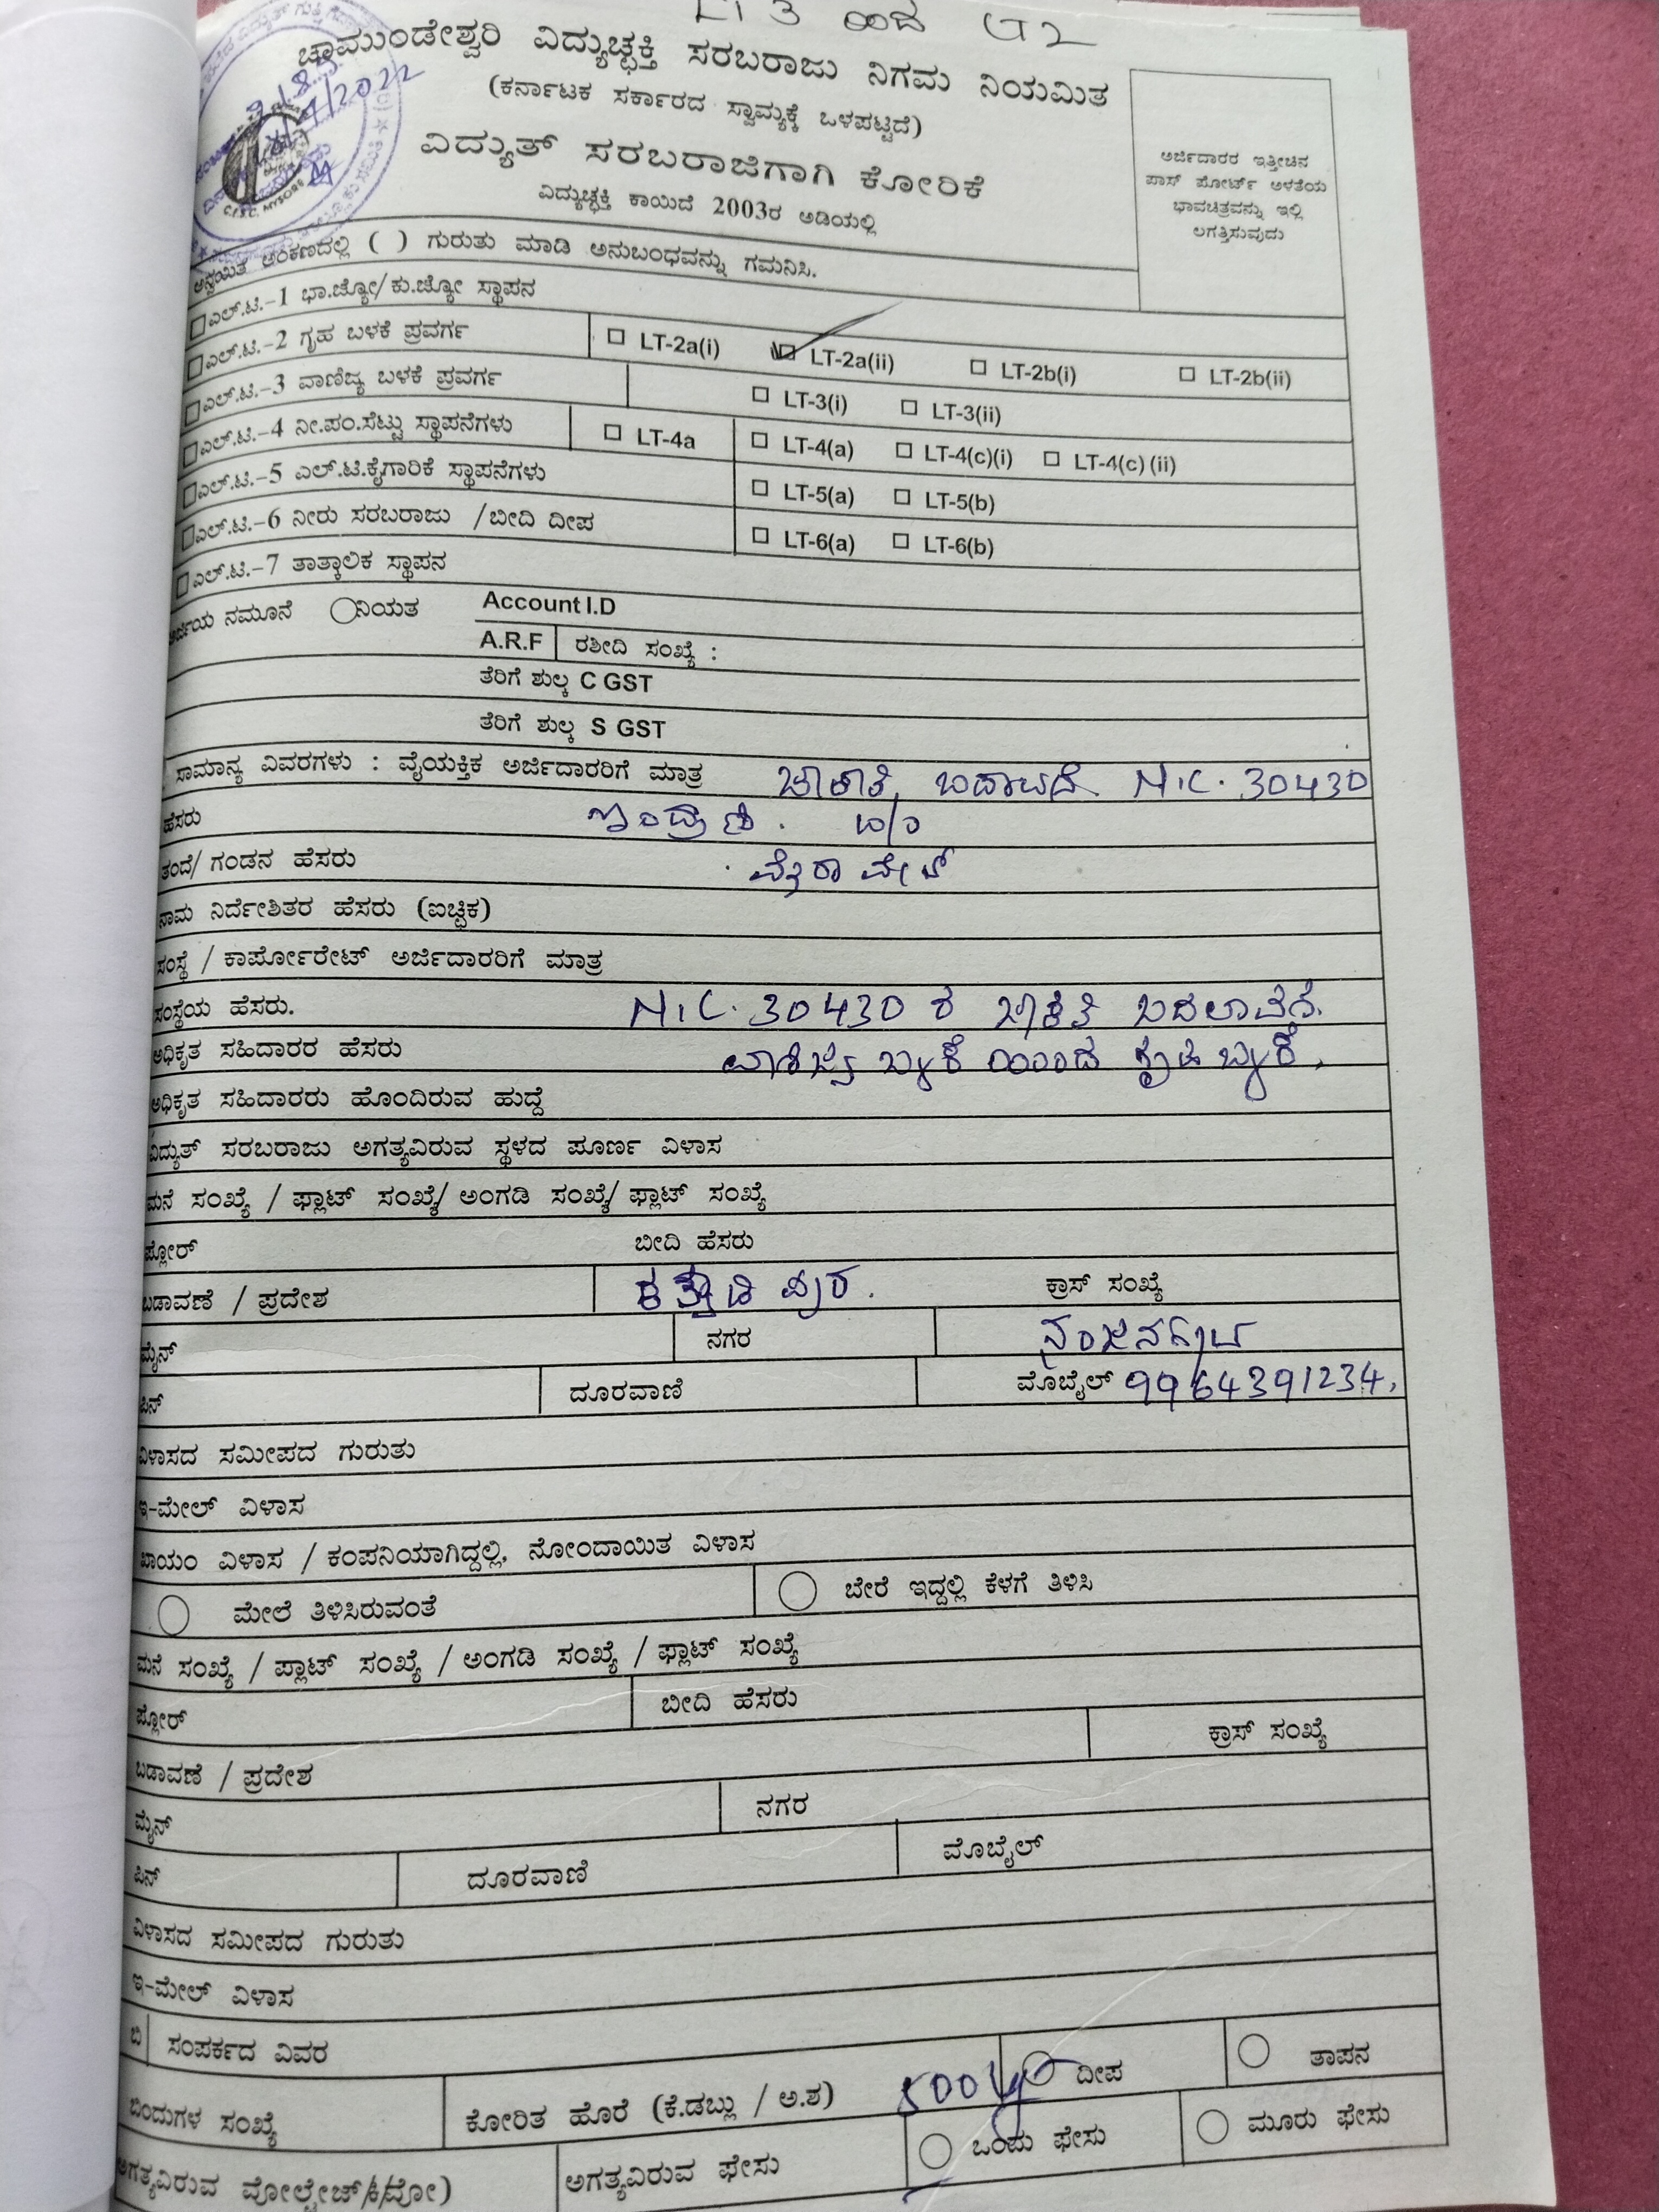 LT 3 ಯಿಂದ LT 2
ಚಾಮುಂಡೇಶ್ವರಿ ವಿದ್ಯುಚ್ಛಕ್ತಿ ಸರಬರಾಜು ನಿಗಮ ನಿಯಮಿತ
(ಕರ್ನಾಟಕ ಸರ್ಕಾರದ ಸ್ವಾಮ್ಯಕ್ಕೆ ಒಳಪಟ್ಟಿದೆ)
ವಿದ್ಯುತ್ ಸರಬರಾಜಿಗಾಗಿ ಕೋರಿಕೆ
ವಿದ್ಯುಚ್ಛಕ್ತಿ ಕಾಯಿದೆ 2003ರ ಅಡಿಯಲ್ಲಿ
ಅರ್ಜಿದಾರರ ಇತ್ತೀಚಿನ
ಪಾಸ್ ಪೋರ್ಟ್ ಅಳತೆಯ
ಭಾವಚಿತ್ರವನ್ನು ಇಲ್ಲಿ
ಲಗತ್ತಿಸುವುದು
C.E.S.C. MYSORE
ಅನ್ವಯಿತ ಅಂಕಣದಲ್ಲಿ ( ) ಗುರುತು ಮಾಡಿ ಅನುಬಂಧವನ್ನು ಗಮನಿಸಿ.
ಎಲ್.ಟಿ.-1 ಭಾ.ಜ್ಯೋ/ ಕು.ಜ್ಯೋ ಸ್ಥಾಪನ
ಎಲ್.ಟಿ.-2 ಗೃಹ ಬಳಕೆ ಪ್ರವರ್ಗ LT-2a(i) LT-2a(ii) LT-2b(i) LT-2b(ii)
ಎಲ್.ಟಿ.-3 ವಾಣಿಜ್ಯ ಬಳಕೆ ಪ್ರವರ್ಗ LT-3(i) LT-3(ii)
ಎಲ್.ಟಿ.-4 ನೀ.ಪಂ.ಸೆಟ್ಟು ಸ್ಥಾಪನೆಗಳು LT-4a LT-4(a) LT-4(c)(i) LT-4(c) (ii)
ಎಲ್.ಟಿ.-5 ಎಲ್.ಟಿ.ಕೈಗಾರಿಕೆ ಸ್ಥಾಪನೆಗಳು LT-5(a) LT-5(b)
ಎಲ್.ಟಿ.-6 ನೀರು ಸರಬರಾಜು /ಬೀದಿ ದೀಪ LT-6(a) LT-6(b)
ಎಲ್.ಟಿ.-7 ತಾತ್ಕಾಲಿಕ ಸ್ಥಾಪನ
ಅರ್ಜಿಯ ನಮೂನೆ ನಿಯತ Account I.D
A.R.F ರಶೀದಿ ಸಂಖ್ಯೆ :
ತೆರಿಗೆ ಶುಲ್ಕ C GST
ತೆರಿಗೆ ಶುಲ್ಕ S GST
ಸಾಮಾನ್ಯ ವಿವರಗಳು : ವೈಯಕ್ತಿಕ ಅರ್ಜಿದಾರರಿಗೆ ಮಾತ್ರ N.C. 30430
ಹೆಸರು ಇಂದ್ರಾಣಿ.
ತಂದೆ/ ಗಂಡನ ಹೆಸರು
ನಾಮ ನಿರ್ದೇಶಿತರ ಹೆಸರು (ಐಚ್ಛಿಕ)
ಸಂಸ್ಥೆ / ಕಾರ್ಪೋರೇಟ್ ಅರ್ಜಿದಾರರಿಗೆ ಮಾತ್ರ
ಸಂಸ್ಥೆಯ ಹೆಸರು. N.C. 30430 ರ ಜಕಾತಿ ಬದಲಾವಣೆ.
ಅಧಿಕೃತ ಸಹಿದಾರರ ಹೆಸರು ವಾಣಿಜ್ಯ ಬಳಕೆ ಯಿಂದ ಗೃಹ ಬಳಕೆ.
ಅಧಿಕೃತ ಸಹಿದಾರರು ಹೊಂದಿರುವ ಹುದ್ದೆ
ವಿದ್ಯುತ್ ಸರಬರಾಜು ಅಗತ್ಯವಿರುವ ಸ್ಥಳದ ಪೂರ್ಣ ವಿಳಾಸ
ಮನೆ ಸಂಖ್ಯೆ / ಫ್ಲಾಟ್ ಸಂಖ್ಯೆ/ ಅಂಗಡಿ ಸಂಖ್ಯೆ/ ಫ್ಲಾಟ್ ಸಂಖ್ಯೆ
ಫ್ಲೋರ್ ಬೀದಿ ಹೆಸರು
ಬಡಾವಣೆ / ಪ್ರದೇಶ ಕ್ರಾಸ್ ಸಂಖ್ಯೆ
ಮೈನ್ ನಗರ ನಂಜನಗೂಡು
ಪಿನ್ ದೂರವಾಣಿ ಮೊಬೈಲ್ 9964391234,
ವಿಳಾಸದ ಸಮೀಪದ ಗುರುತು
ಇ-ಮೇಲ್ ವಿಳಾಸ
ಖಾಯಂ ವಿಳಾಸ / ಕಂಪನಿಯಾಗಿದ್ದಲ್ಲಿ, ನೋಂದಾಯಿತ ವಿಳಾಸ
ಮೇಲೆ ತಿಳಿಸಿರುವಂತೆ ಬೇರೆ ಇದ್ದಲ್ಲಿ ಕೆಳಗೆ ತಿಳಿಸಿ
ಮನೆ ಸಂಖ್ಯೆ / ಪ್ಲಾಟ್ ಸಂಖ್ಯೆ / ಅಂಗಡಿ ಸಂಖ್ಯೆ / ಫ್ಲಾಟ್ ಸಂಖ್ಯೆ
ಫ್ಲೋರ್ ಬೀದಿ ಹೆಸರು
ಬಡಾವಣೆ / ಪ್ರದೇಶ ಕ್ರಾಸ್ ಸಂಖ್ಯೆ
ಮೈನ್ ನಗರ
ಪಿನ್ ದೂರವಾಣಿ ಮೊಬೈಲ್
ವಿಳಾಸದ ಸಮೀಪದ ಗುರುತು
ಇ-ಮೇಲ್ ವಿಳಾಸ
ಬಿ ಸಂಪರ್ಕದ ವಿವರ ದೀಪ ತಾಪನ
ಬಿಂದುಗಳ ಸಂಖ್ಯೆ ಕೋರಿತ ಹೊರೆ (ಕೆ.ಡಬ್ಲು / ಅ.ಶ) 500 ಒಂದು ಫೇಸು ಮೂರು ಫೇಸು
ಅಗತ್ಯವಿರುವ ವೋಲ್ಟೇಜ್ ಅಗತ್ಯವಿರುವ ಫೇಸು